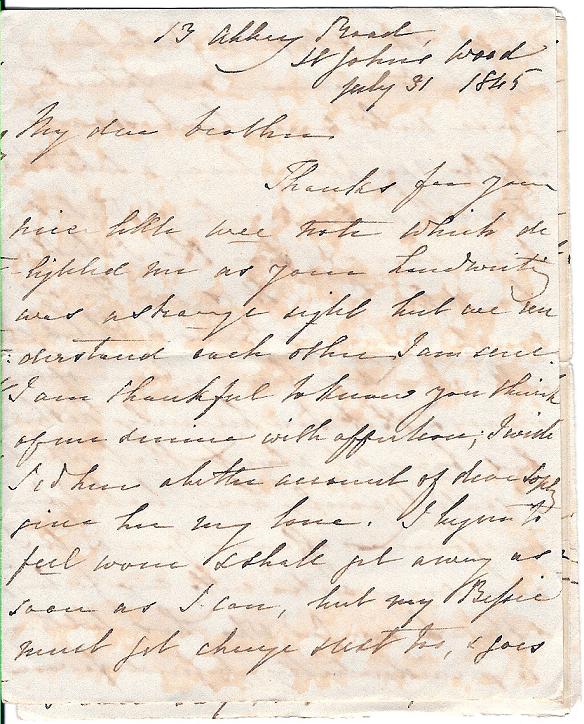 13 Abbey Road,
St John's Wood
July 31 1845
My dear brother
Thanks for your
nice little wee note which de
lighted me as your handwriting
was a strange sight but we un
derstand each other I am sure
I am thankful to know you think
of me with affection; I wish
I'd have a better account of dear Sophy
give her my love. I begin to
feel worn & shall get away as
soon as I can, but my Bessie
must get change &